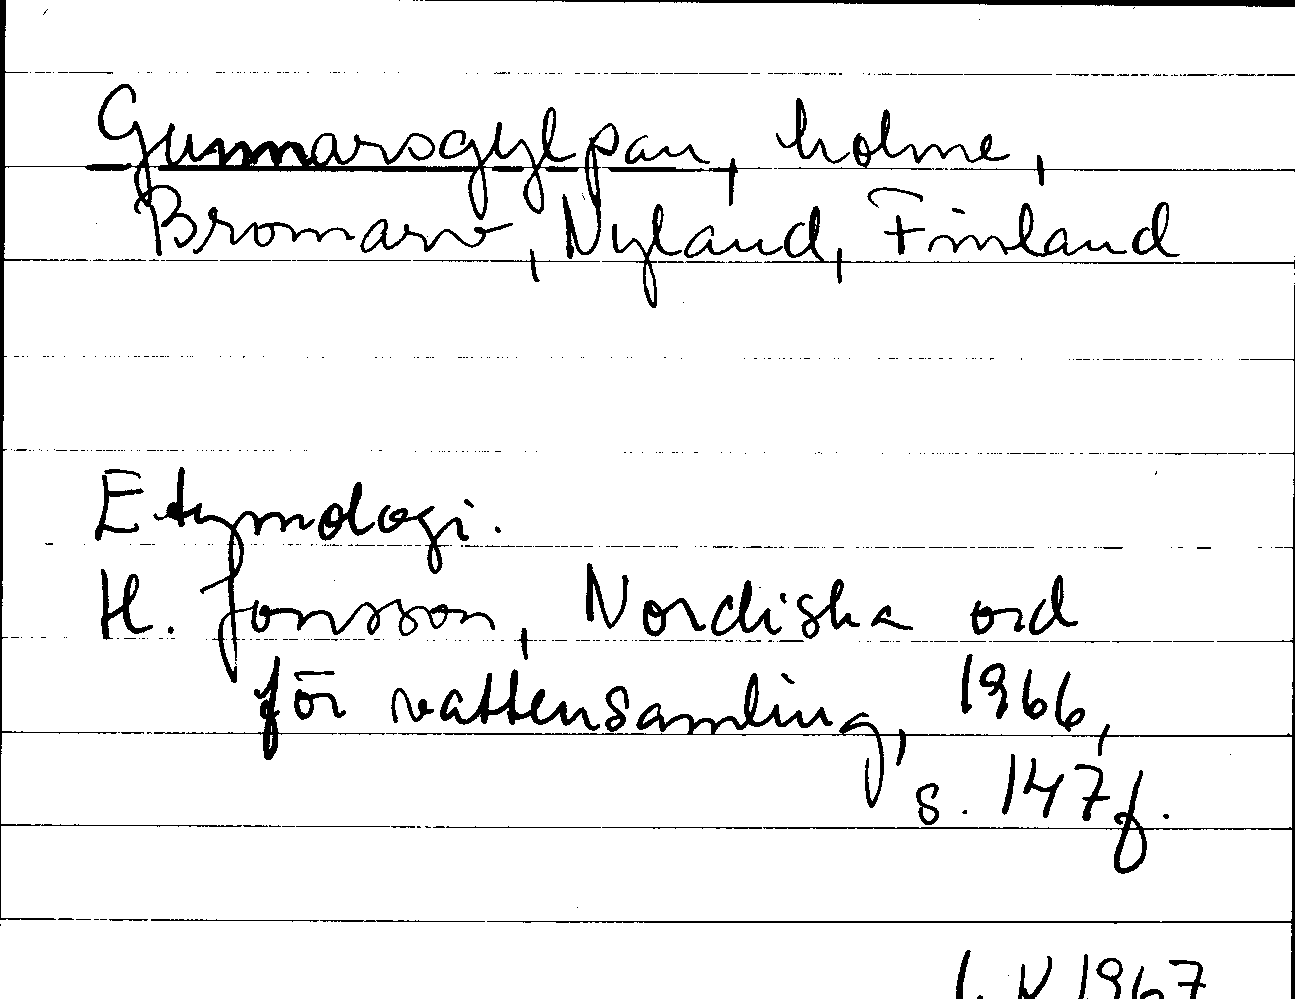 Gunnarsgylpan, holme,
Bromarv, Nyland, Finland
Etymologi.
H. Jonsson, Nordiska ord
för vattensamling, 1966,
s. 147f.
1967